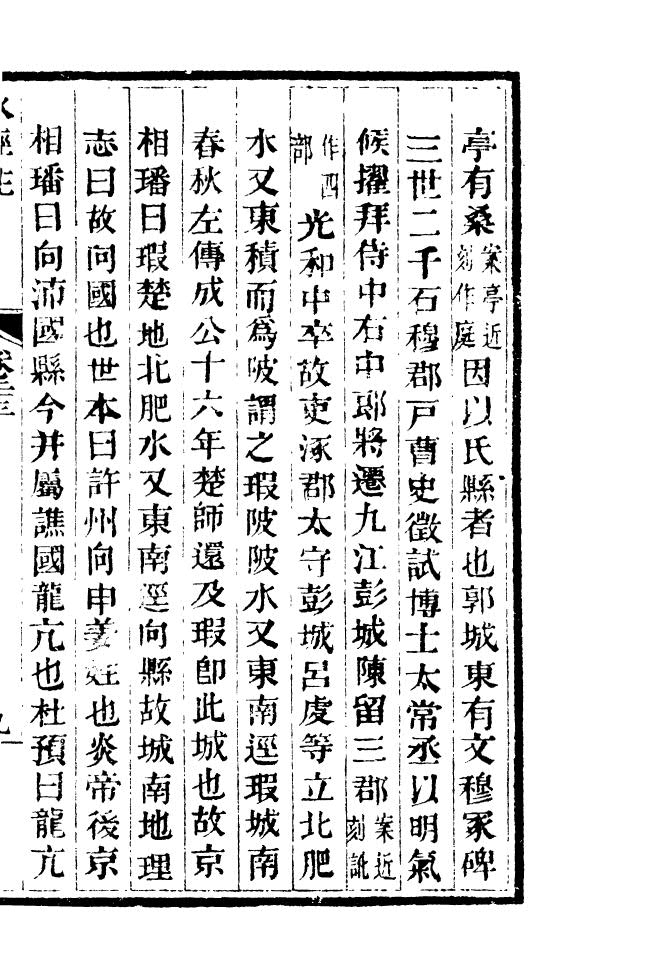 亭有桑案亭近刻作庭因以氏縣者也郭城東有文穆冢碑
三世二千石穆郡戸曹史徵試博士太常丞以明氣
候擢拜侍中右中郎將遷九江彭城陳留三郡案近刻訛
作四部光和中卒故吏涿郡太守彭城呂虔等立北肥
水又東積而爲陂謂之瑕陂陂水又東南逕瑕城南
春秋左傳成公十六年楚師還及瑕卽此城也故京
相璠曰瑕楚地北肥水又東南逕向縣故城南地理
志曰故向國也世本曰許州向申姜姓也炎帝後京
相璠曰向沛國縣今并屬譙國龍亢也杜預曰龍亢
水經注 卷二十三 九